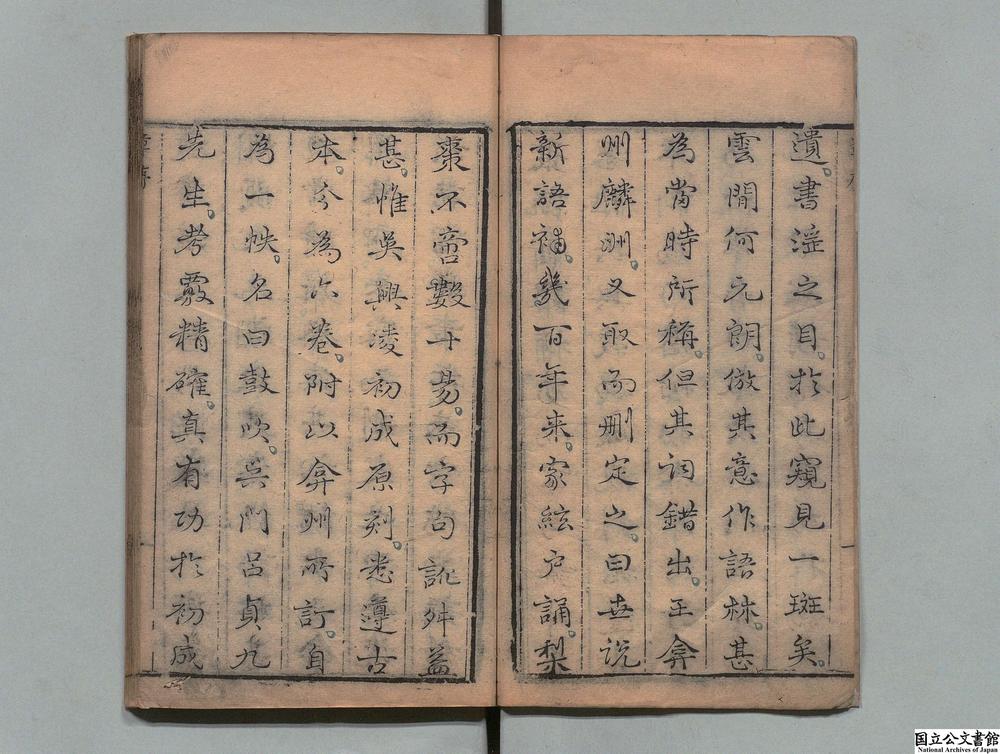 遺書滛之目。於此窺見一斑矣。
雲間何元朗。倣其意作語林。甚
為當時所稱。但其詞錯出。王弇
州麟洲。又取而删定之。曰世說
新語補。幾百年来。家絃戶誦。梨
棗不啻數十易。而字句訛舛益
甚。惟吳興凌初成原刻。悉遵古
本。分為六卷。附以弇州所訂。自
為一帙。名曰鼓吹。吳門呂貞九
先生。考覈精確。真有功於初成
国立公文書館
National Archives of Japan